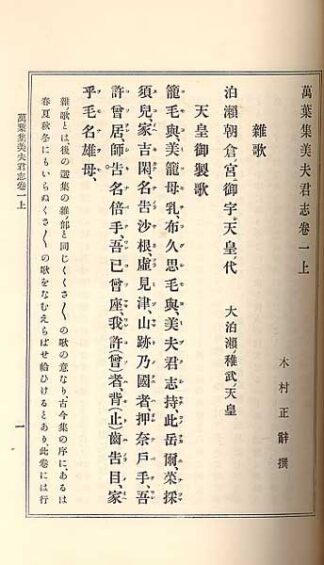 萬葉集美夫君志卷一上
木村正辭撰
雜歌
泊瀨朝倉宮御宇天皇代　大泊瀨稚武天皇
天皇御製歌
籠毛與、美籠母乳、布久思毛與、美夫君志持、此岳爾、菜採
須兒、家吉閑、名告沙根、虛見津、山跡乃國者、押奈戶手、吾
許曾居、師告名倍手、吾已曾座、我許(曾)者、背(止)齒告目、家
乎毛名雄母、
雜歌とは後の選集の雜部と同じくくさ〲の歌の意なり、古今集の序に、あるは
春夏秋冬にもいらぬくさ〲の歌をなむえらばせ給ひけるとあり、此卷には行
萬葉集美夫君志卷一上
一